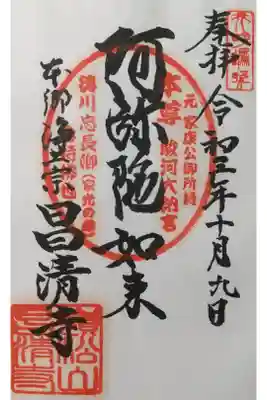 奉拝
令和三年十月九日
阿弥陀如来
本尊
元家康公御所持
駿河大納言
徳川忠長卿
本郷
浄土宗
昌清寺